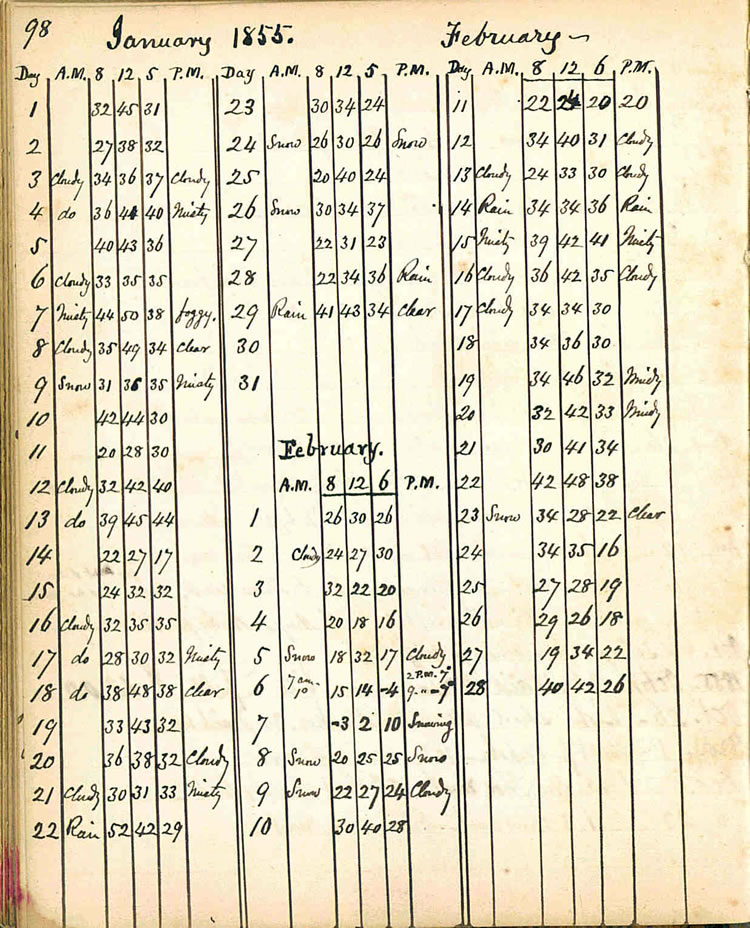 98
January 1855.
Day A.M. 8 12 5 P.M.
1 32 45 31
2 27 38 32
3 Cloudy 34 36 37 Cloudy
4 do 36 41 40 Misty
5 40 43 36
6 Cloudy 33 35 35
7 Misty 44 50 38 foggy.
8 Cloudy 35 49 34 Clear
9 Snow 31 36 35 Misty
10 42 44 30
11 20 28 30
12 Cloudy 32 42 40
13 do 39 45 44
14 22 27 17
15 24 32 32
16 Cloudy 32 35 35
17 do 28 30 32 Misty
18 do 38 48 38 Clear
19 33 43 32
20 36 38 32 Cloudy
21 Cludy 30 31 33 Misty
22 Rain 52 42 29
Day A.M. 8 12 5 P.M.
23 30 34 24
24 Snow 26 30 26 Snow
25 20 40 24
26 Snow 30 34 37
27 22 31 23
28 22 34 36 Rain
29 Rain 41 43 34 Clear
30
31
February.
A.M. 8 12 6 P.M.
1 26 30 26
2 Cloudy 24 27 30
3 32 22 20
4 20 18 16
5 Snow 18 32 17 Cloudy
2 P.M. 7°
6 7 am 10 15 14 -4 9 " -9°
7 -3 2 10 Snowing
8 Snow 20 25 25 Snow
9 Snow 22 27 24 Cloudy
10 30 40 28
February
Day A.M. 8 12 6 P.M.
11 22 24 20 20
12 34 40 31 Cloudy
13 Cloudy 24 33 30 Cloudy
14 Rain 34 34 36 Rain
15 Misty 39 42 41 Misty
16 Cloudy 36 42 35 Cloudy
17 Cloudy 34 34 30
18 34 36 30
19 34 46 32
20 32 42 33
21 30 41 34
22 42 48 38
23 Snow 34 28 22 Clear
24 34 35 16
25 27 28 19
26 29 26 18
27 19 34 22
28 40 42 26